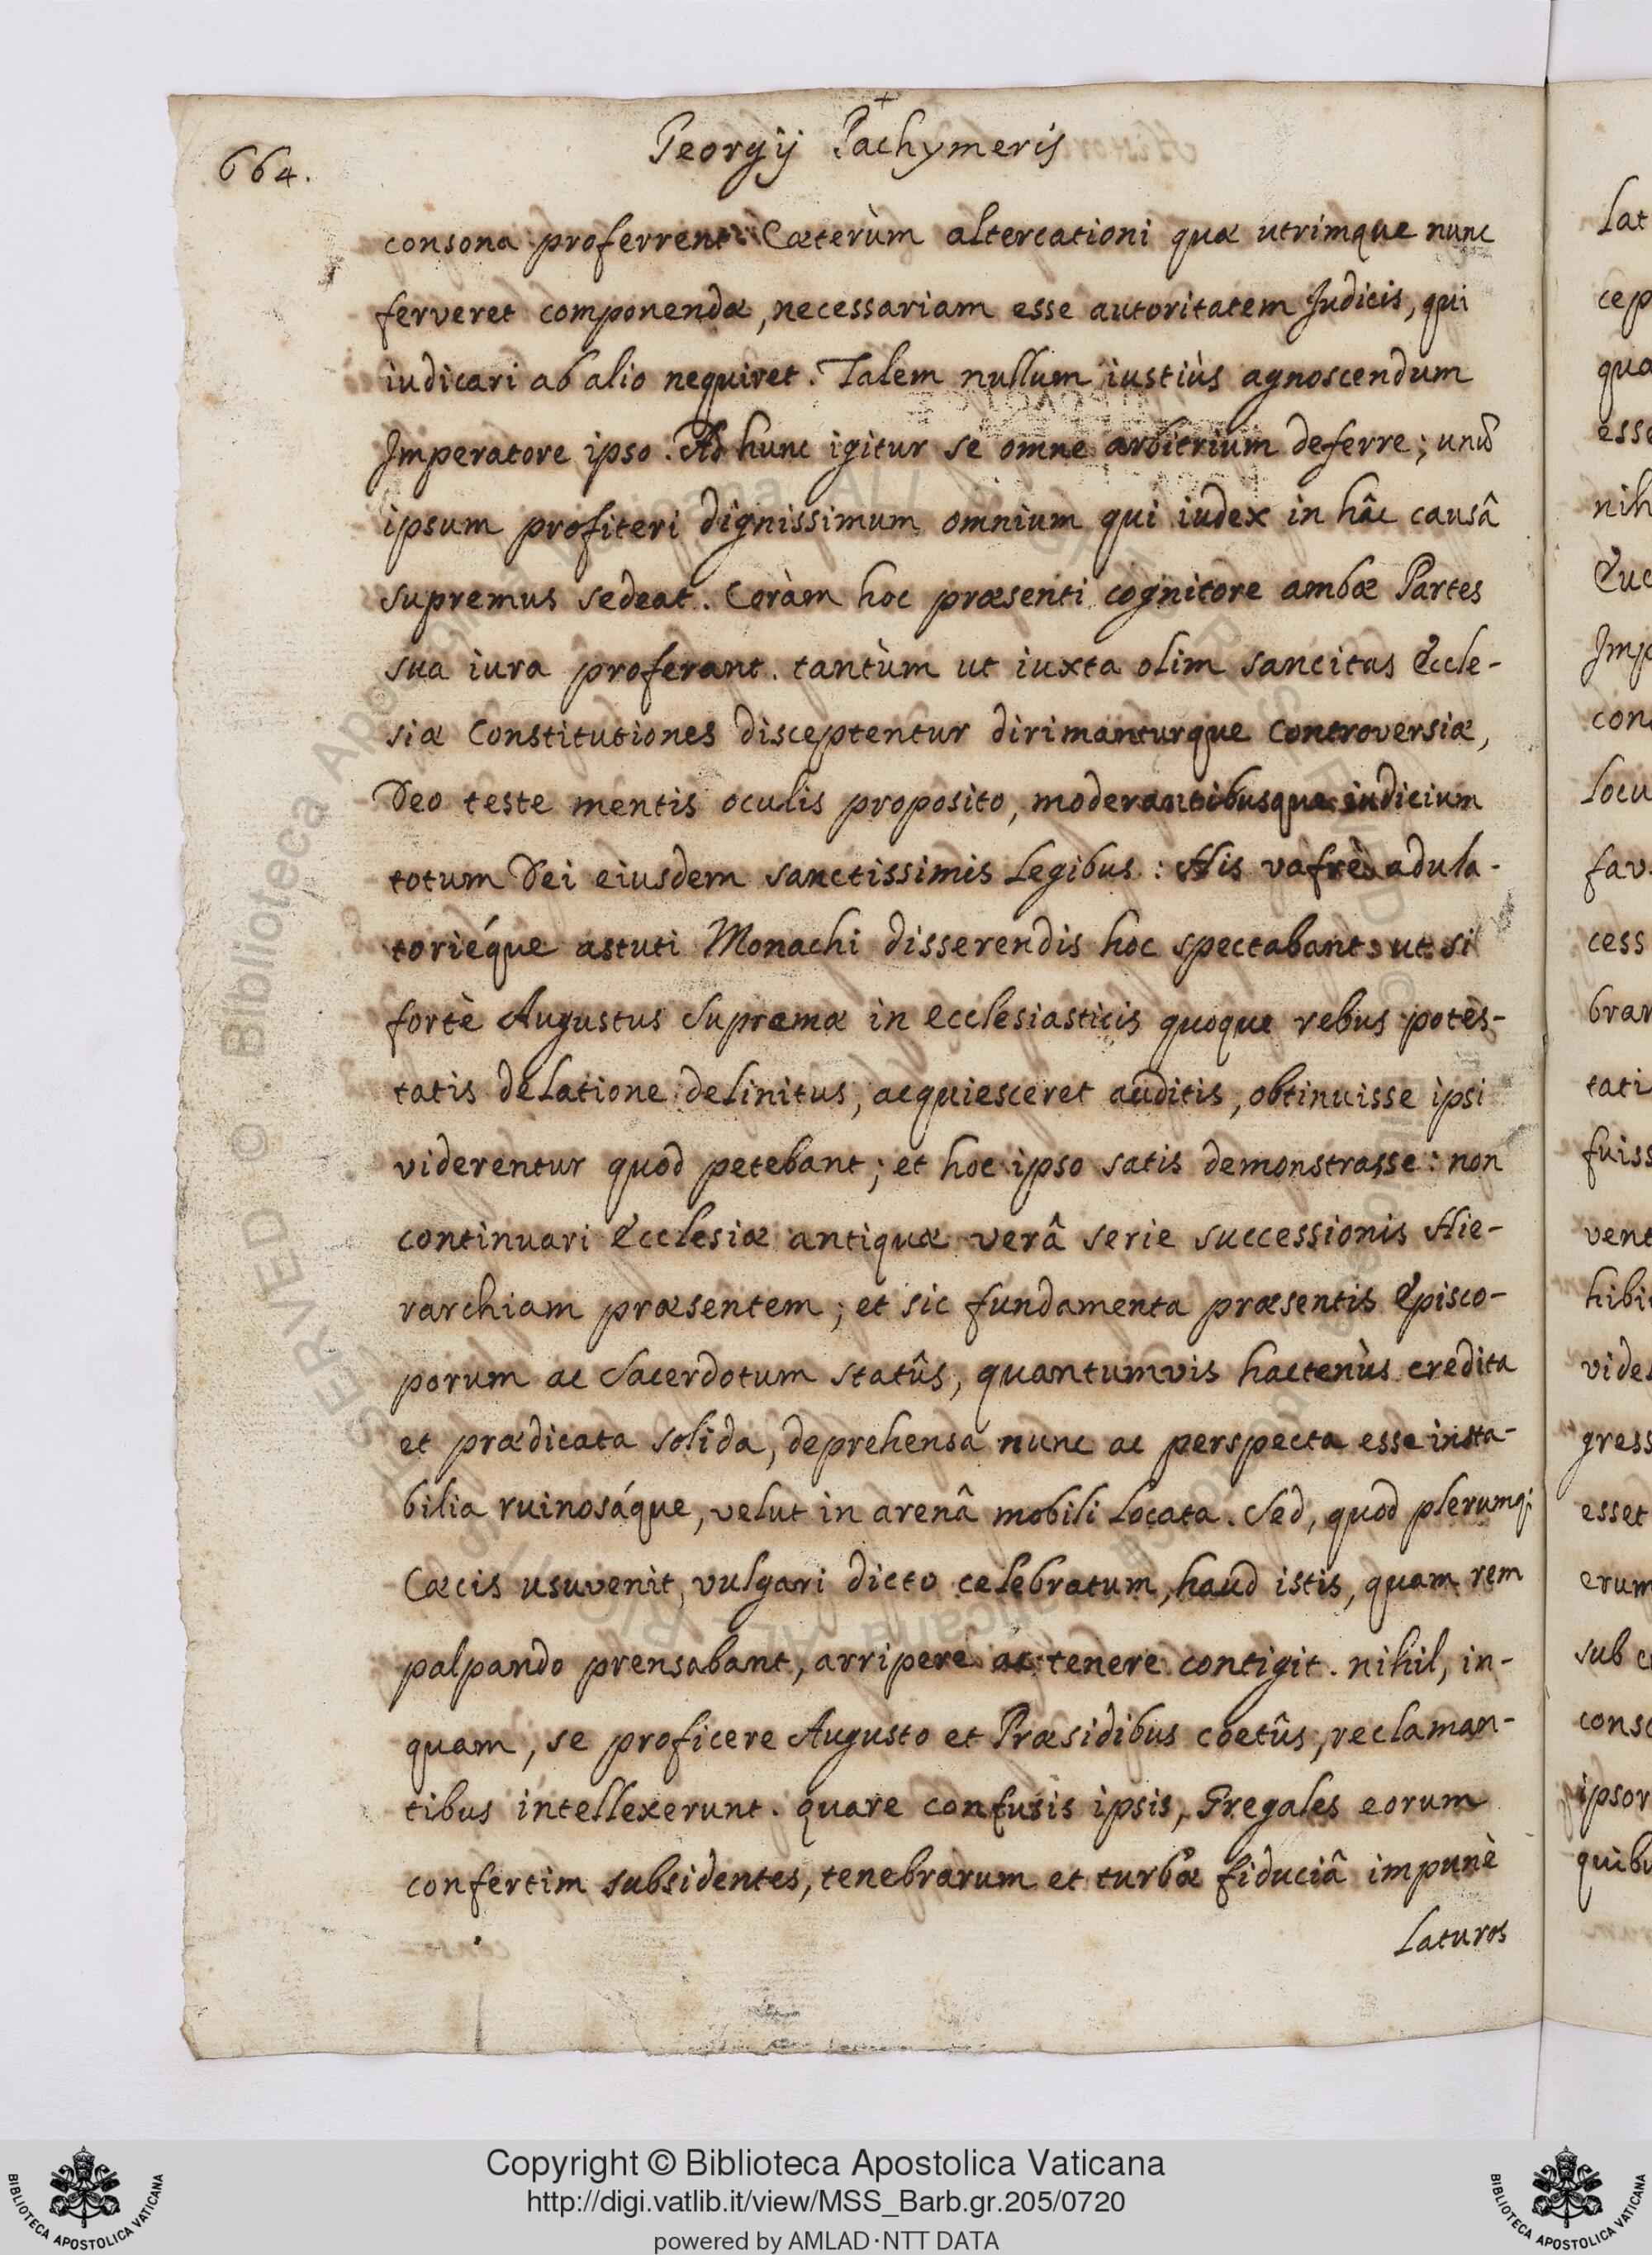 664.
Georgij Pachymeris
consona proferrent. Cæterùm altercationi quæ utrimque nunc
ferveret componendæ, necessariam esse autoritatem Judicis, qui
iudicari ab alio nequiret. Talem nullum iustiùs agnoscendum
Imperatore ipso. Ad hunc igitur se omne arbitrium deferre; unū
ipsum profiteri dignissimum omnium qui iudex in hâc causâ
supremus sedeat. Coràm hoc præsenti cognitore ambæ Partes
sua iura proferant. tantùm ut iuxta olim sancitas Eccle-
siæ Constitutiones disceptentur dirimanturque controversiæ,
Deo teste mentis oculis proposito, moderantibusque iudicium
totum Dei eiusdem sanctissimis Legibus: His vafrè adula-
toriéque astuti Monachi disserendis hoc spectabant, ut si
fortè Augustus Supremæ in Ecclesiasticis quoque rebus potes-
tatis delatione delinitus, acquiesceret auditis, obtinuisse ipsi
viderentur quod petebant; et hoc ipso satis demonstrasse: non
continuari Ecclesiæ antiquæ verâ serie successionis Hie-
rarchiam præsentem; et sic fundamenta præsentis Episco-
porum ac Sacerdotum statûs, quantumvis hactenùs credita
et prædicata solida, deprehensa nunc ac perspecta esse insta-
bilia ruinosáque, velut in arenâ mobili Locata. Sed, quod plerumq;
Cæcis usuvenit, vulgari dicto celebratum, haud istis, quam rem
palpando prensabant, arripere ac tenere contigit. nihil, in-
quam, se proficere Augusto et Præsidibus coetûs, reclaman-
tibus intellexerunt. quare confusis ipsis, Gregales eorum
confertim subsidentes, tenebrarum et turbæ fiduciâ impunè
Laturos
Lat
cep
qua
esse
nih
Que
Imp
con
Locu
fav
cess
bran
tati
fuiss
vent
hibi
vides
gress
esset
erum
sub c
conse
ipsor
quibu
Copyright © Biblioteca Apostolica Vaticana
http://digi.vatlib.it/view/MSS_Barb.gr.205/0720
powered by AMLAD·NTT DATA
BIBLIOTECA APOSTOLICA VATICANA
BIBLIOTECA APOSTOLICA VATICANA